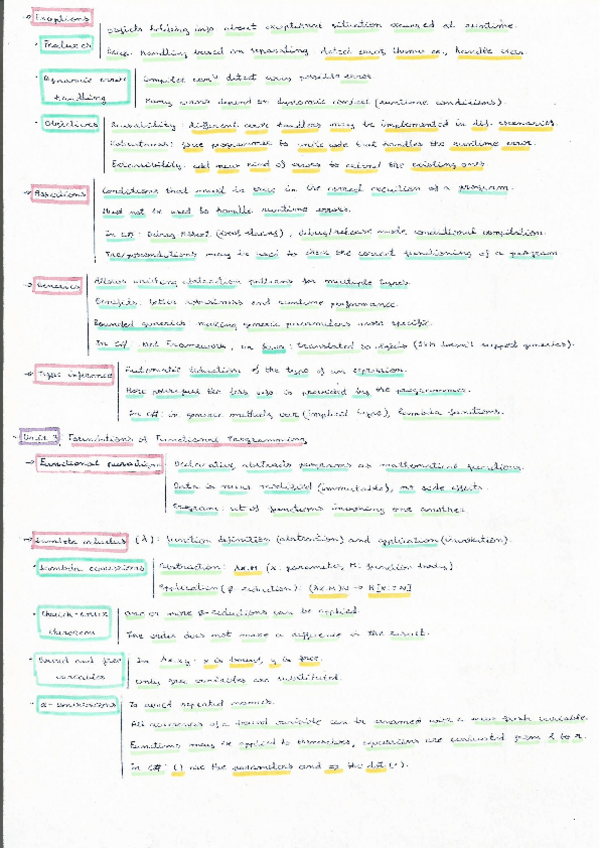 → Exceptions | Objects holding info about exceptional situation occurred at runtime.
· Features | Error handling based on separating detect error, throw ex., handle ex.
· Dynamic error handling | Compiler can't detect every possible error.
Many errors depend on dynamic context (runtime conditions).
· Objectives | Reusability: different error handlers may be implemented in dif. scenarios.
Robustness: force programmer to write code that handles the runtime error.
Extensibility: add new kind of errors to extend the existing ones.
→ Assertions | Conditions that must be true in the correct execution of a program.
Must not be used to handle runtime errors.
In C#: Debug.Assert (cond, string), debug/release mode, conditional compilation.
may be used to check the correct functioning of a program
→ Generics | Allows writing abstraction patterns for multiple types.
Benefits: better robustness and runtime performance.
Bounded generics: making generic parameters more specific.
In C#: .Net Framework, in Java: translated to objects (JVM doesn't support generics).
→ Type inference | Automatic deduction of the type of an expression.
More powerful the less info is provided by the programmer.
In C#: in generic methods, var (implicit type), lambda functions.
· Unit 3 Foundations of Functional Programming
→ Functional paradigm | Declarative, abstracts programs as mathematical functions.
Data is never modified (immutable), no side effects.
Program: set of functions invoking one another.
→ Lambda calculus (λ): function definition (abstraction) and application (invocation).
· Lambda expressions | Abstraction: λx.M (x: parameter, M: function body)
Application (β-reduction): (λx.M)N → M[x:=N]
· Church-Rosser theorem | One or more β-reductions can be applied.
The order does not make a difference in the result.
· Bound and free variables | In λx.xy: x is bound, y is free.
Only free variables are substituted.
· α-conversions | To avoid repeated names.
All occurrences of a bound variable can be renamed with a new fresh variable.
Functions may be applied to themselves, expressions are evaluated from l to r.
In C#: () are the parameters and => the dot (.).